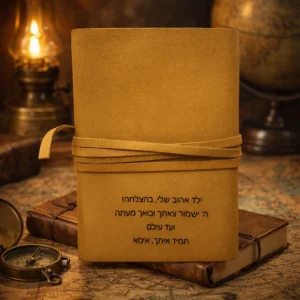 ילד אהוב שלי, בהצלחה!
ה' ישמור צאתך ובואך מעתה
ועד עולם
תמיד איתך, אימא